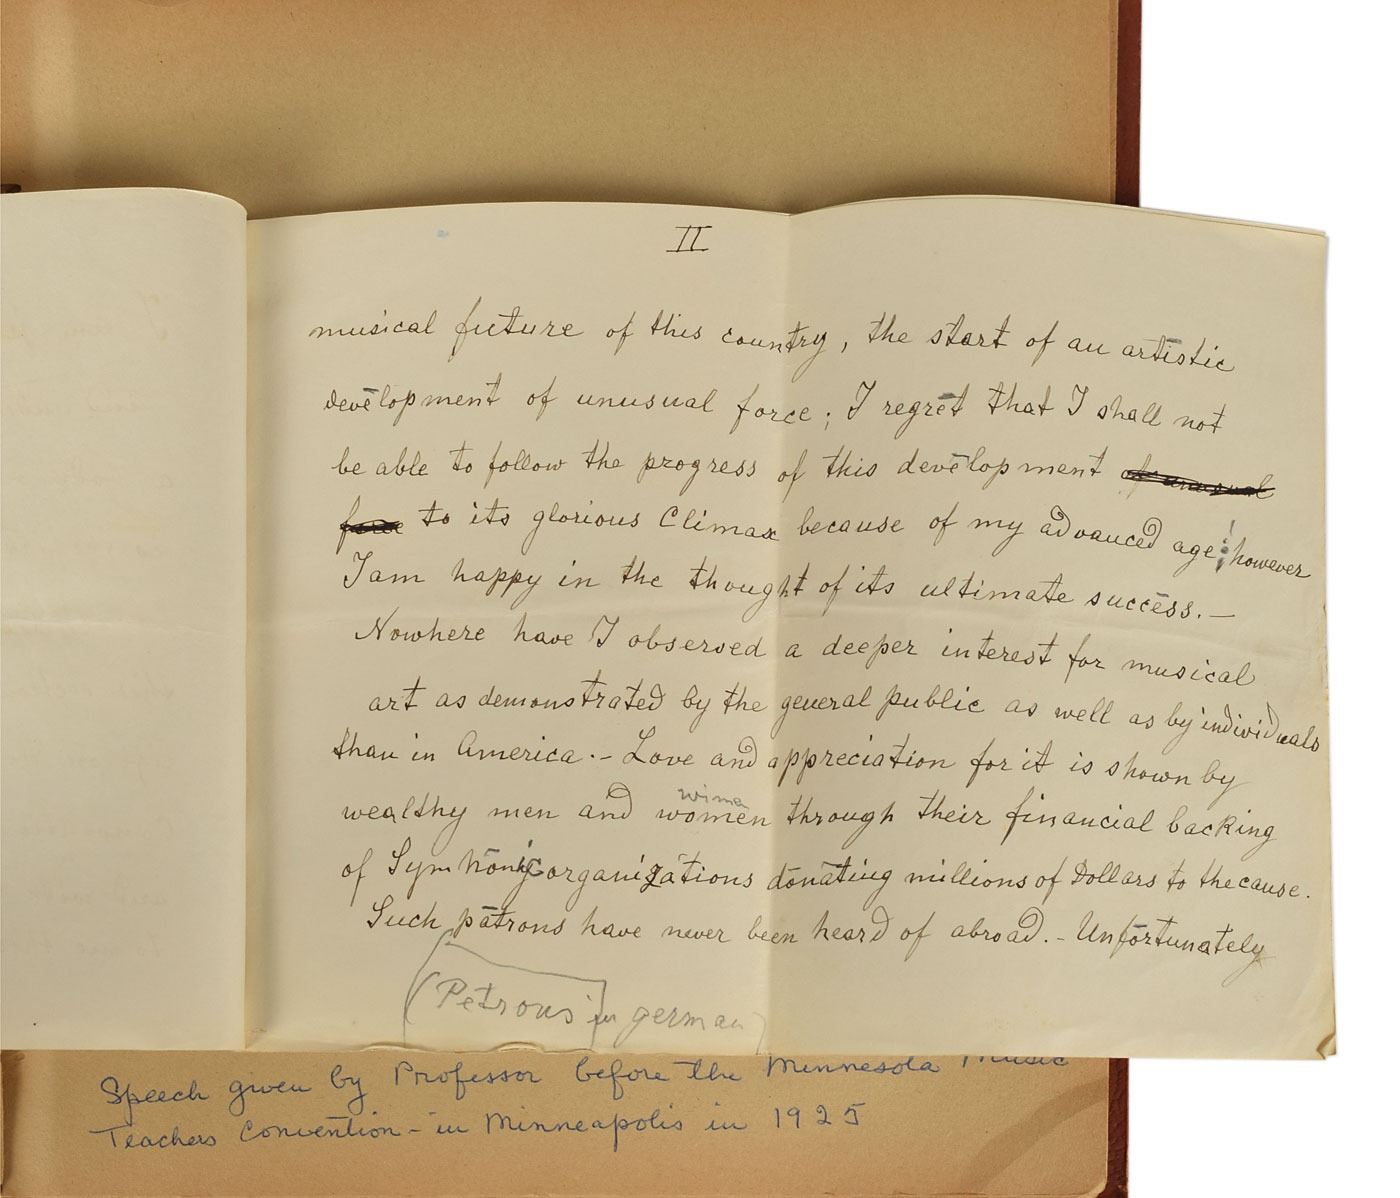 II
musical future of this country, the start of an artistic
development of unusual force; I regret that I shall not
be able to follow the progress of this development of unusual
force to its glorious Climax because of my advanced age; however
I am happy in the thought of its ultimate success.—
Nowhere have I observed a deeper interest for musical
art as demonstrated by the general public as well as by individuals
than in America.- Love and appreciation for it is shown by
wima
wealthy men and women through their financial backing
of Symhonic organizations donating millions of Dollars to the cause.
Such patrons have never been heard of abroad.- Unfortunately
(Petrons in german)
Speech given by Professor before the Minnesota Music
Teachers Convention - in Minneapolis in 1925